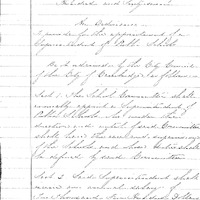 An Ordinance
to provide for the appointment of a
Superintendent of Public Schools
Be it ordained by the City Council
of the City of Cambridge as follows.
Sect. 1. The School Committee shall
annually appoint a Superintendent of
Public Schools, who under the
direction and control of said Committee
shall have the care and supervision
of the Schools, and whose duties shall
be defined by said Committee.
Sect. 2. Said Superintendent shall
receive an annual salary of
Two Thousand